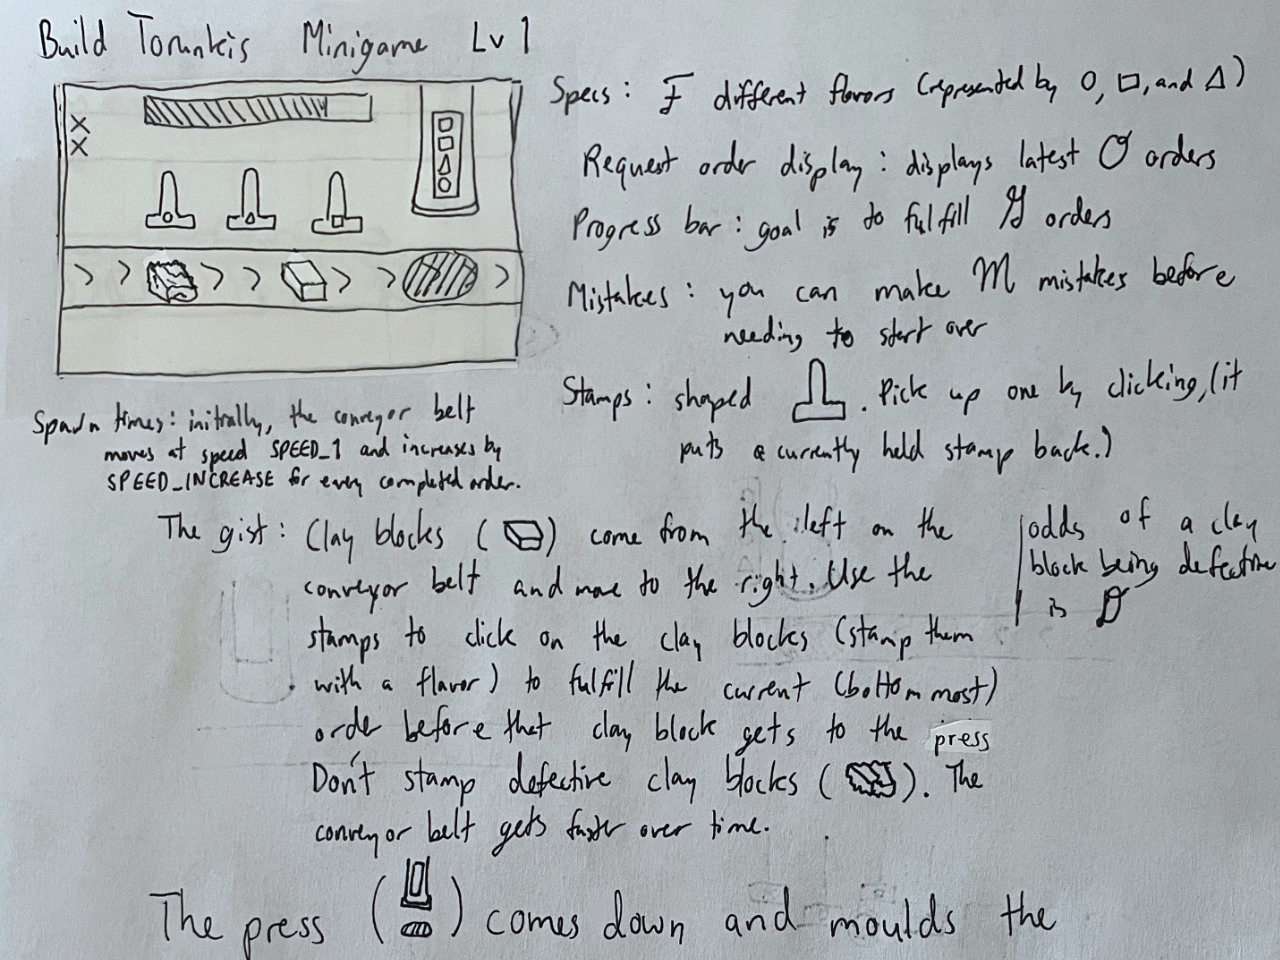 Build Torunkis Minigame Lv 1
Specs: F different flavors (represented by O, □, and △)
Request order display: displays latest O orders
Progress bar: goal is to fulfill G orders
Mistakes: you can make M mistakes before
needing to start over
Stamps: shaped . Pick up one by clicking, (it
puts a currently held stamp back.)
Spawn times: initially, the conveyor belt
moves at speed SPEED_1 and increases by
SPEED_INCREASE for every completed order.
The gist: Clay blocks ( ) come from the left on the
conveyor belt and move to the right. Use the
stamps to click on the clay blocks (stamp them
with a flavor) to fulfill the current (bottommost)
order before that clay block gets to the press
Don't stamp defective clay blocks ( ). The
conveyor belt gets faster over time.
odds of a clay
block being defective
is D
The press ( ) comes down and moulds the